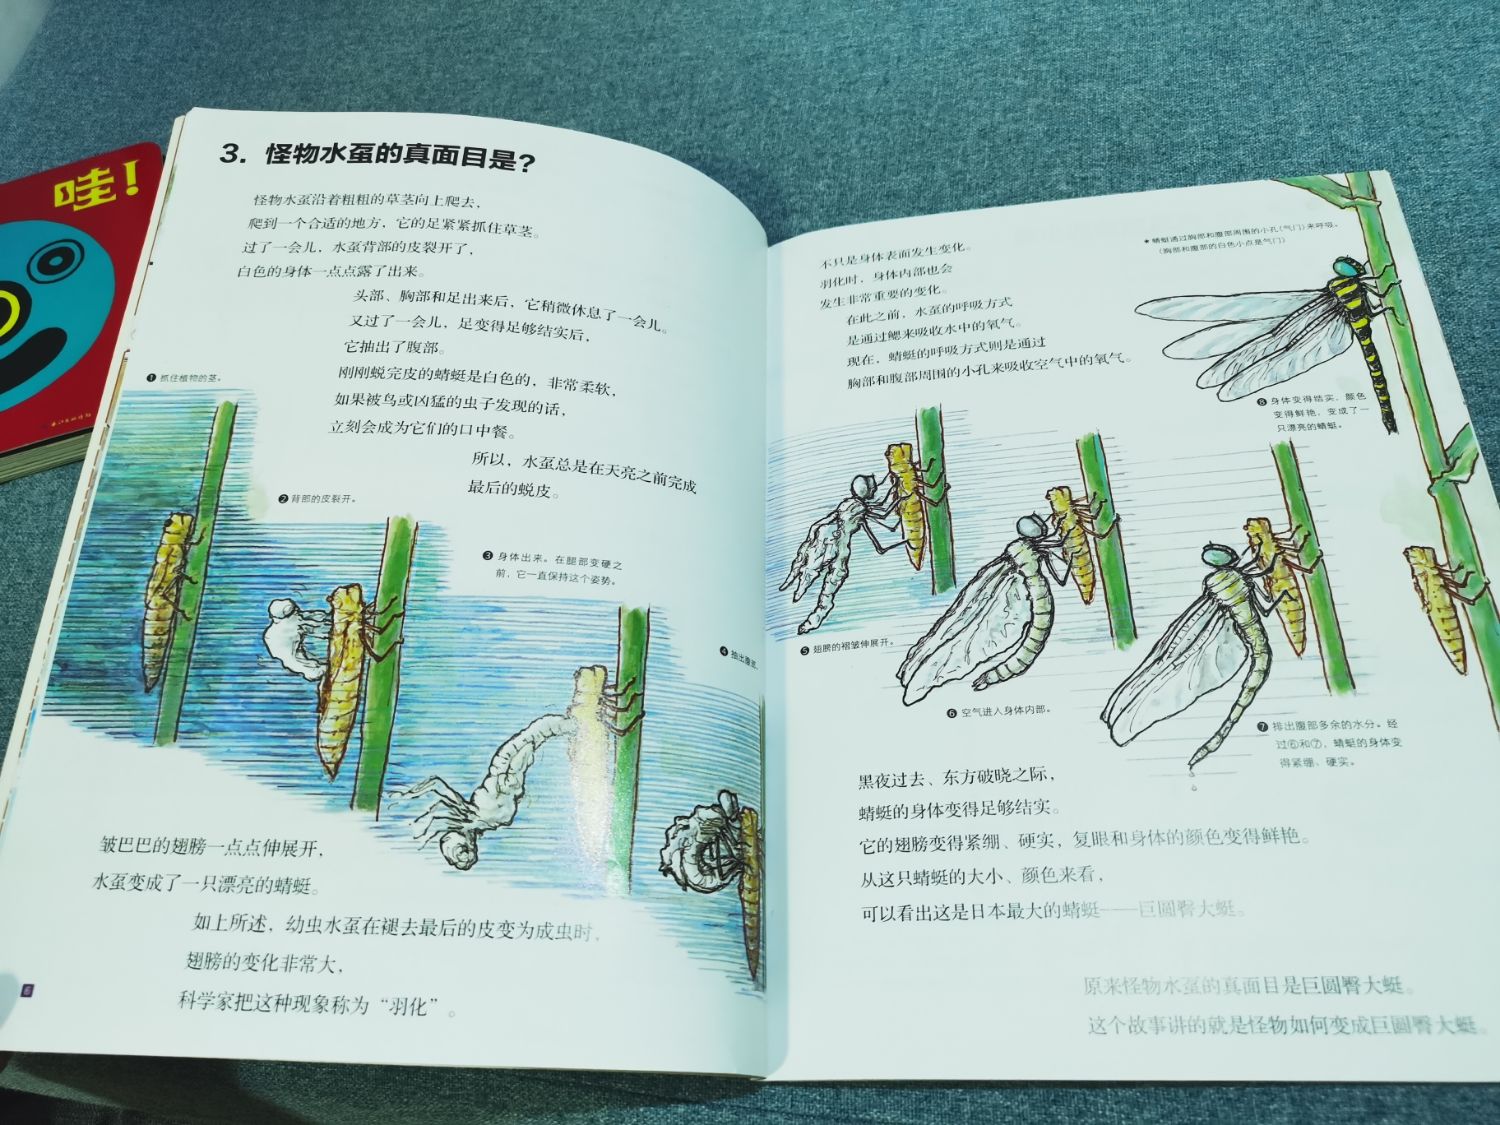 哇！
3. 怪物水虿的真面目是？
怪物水虿沿着粗粗的草茎向上爬去，
爬到一个合适的地方，它的足紧紧抓住草茎。
过了一会儿，水虿背部的皮裂开了，
白色的身体一点点露了出来。
头部、胸部和足出来后，它稍微休息了一会儿。
又过了一会儿，足变得足够结实后，
它抽出了腹部。
刚刚蜕完皮的蜻蜓是白色的，非常柔软，
如果被鸟或凶猛的虫子发现的话，
立刻会成为它们的口中餐。
所以，水虿总是在天亮之前完成
最后的蜕皮。
❶ 抓住植物的茎。
❷ 背部的皮裂开。
❸ 身体出来。在腿部变硬之
前，它一直保持这个姿势。
❹ 抽出腹部。
皱巴巴的翅膀一点点伸展开，
水虿变成了一只漂亮的蜻蜓。
如上所述，幼虫水虿在褪去最后的皮变为成虫时，
翅膀的变化非常大，
科学家把这种现象称为“羽化”。
不只是身体表面发生变化。
羽化时，身体内部也会
发生非常重要的变化。
在此之前，水虿的呼吸方式
是通过鳃来吸收水中的氧气。
现在，蜻蜓的呼吸方式则是通过
胸部和腹部周围的小孔来吸收空气中的氧气。
★ 蜻蜓通过胸部和腹部周围的小孔（气门）来呼吸。
（胸部和腹部的白色小点是气门）
❽ 身体变得结实，颜色
变得鲜艳，变成了一
只漂亮的蜻蜓。
❺ 翅膀的褶皱伸展开。
❻ 空气进入身体内部。
❼ 排出腹部多余的水分。经
过⑥和⑦，蜻蜓的身体变
得紧绷、硬实。
黑夜过去、东方破晓之际，
蜻蜓的身体变得足够结实。
它的翅膀变得紧绷、硬实，复眼和身体的颜色变得鲜艳。
从这只蜻蜓的大小、颜色来看，
可以看出这是日本最大的蜻蜓——巨圆臀大蜓。
原来怪物水虿的真面目是巨圆臀大蜓。
这个故事讲的就是怪物如何变成巨圆臀大蜓。